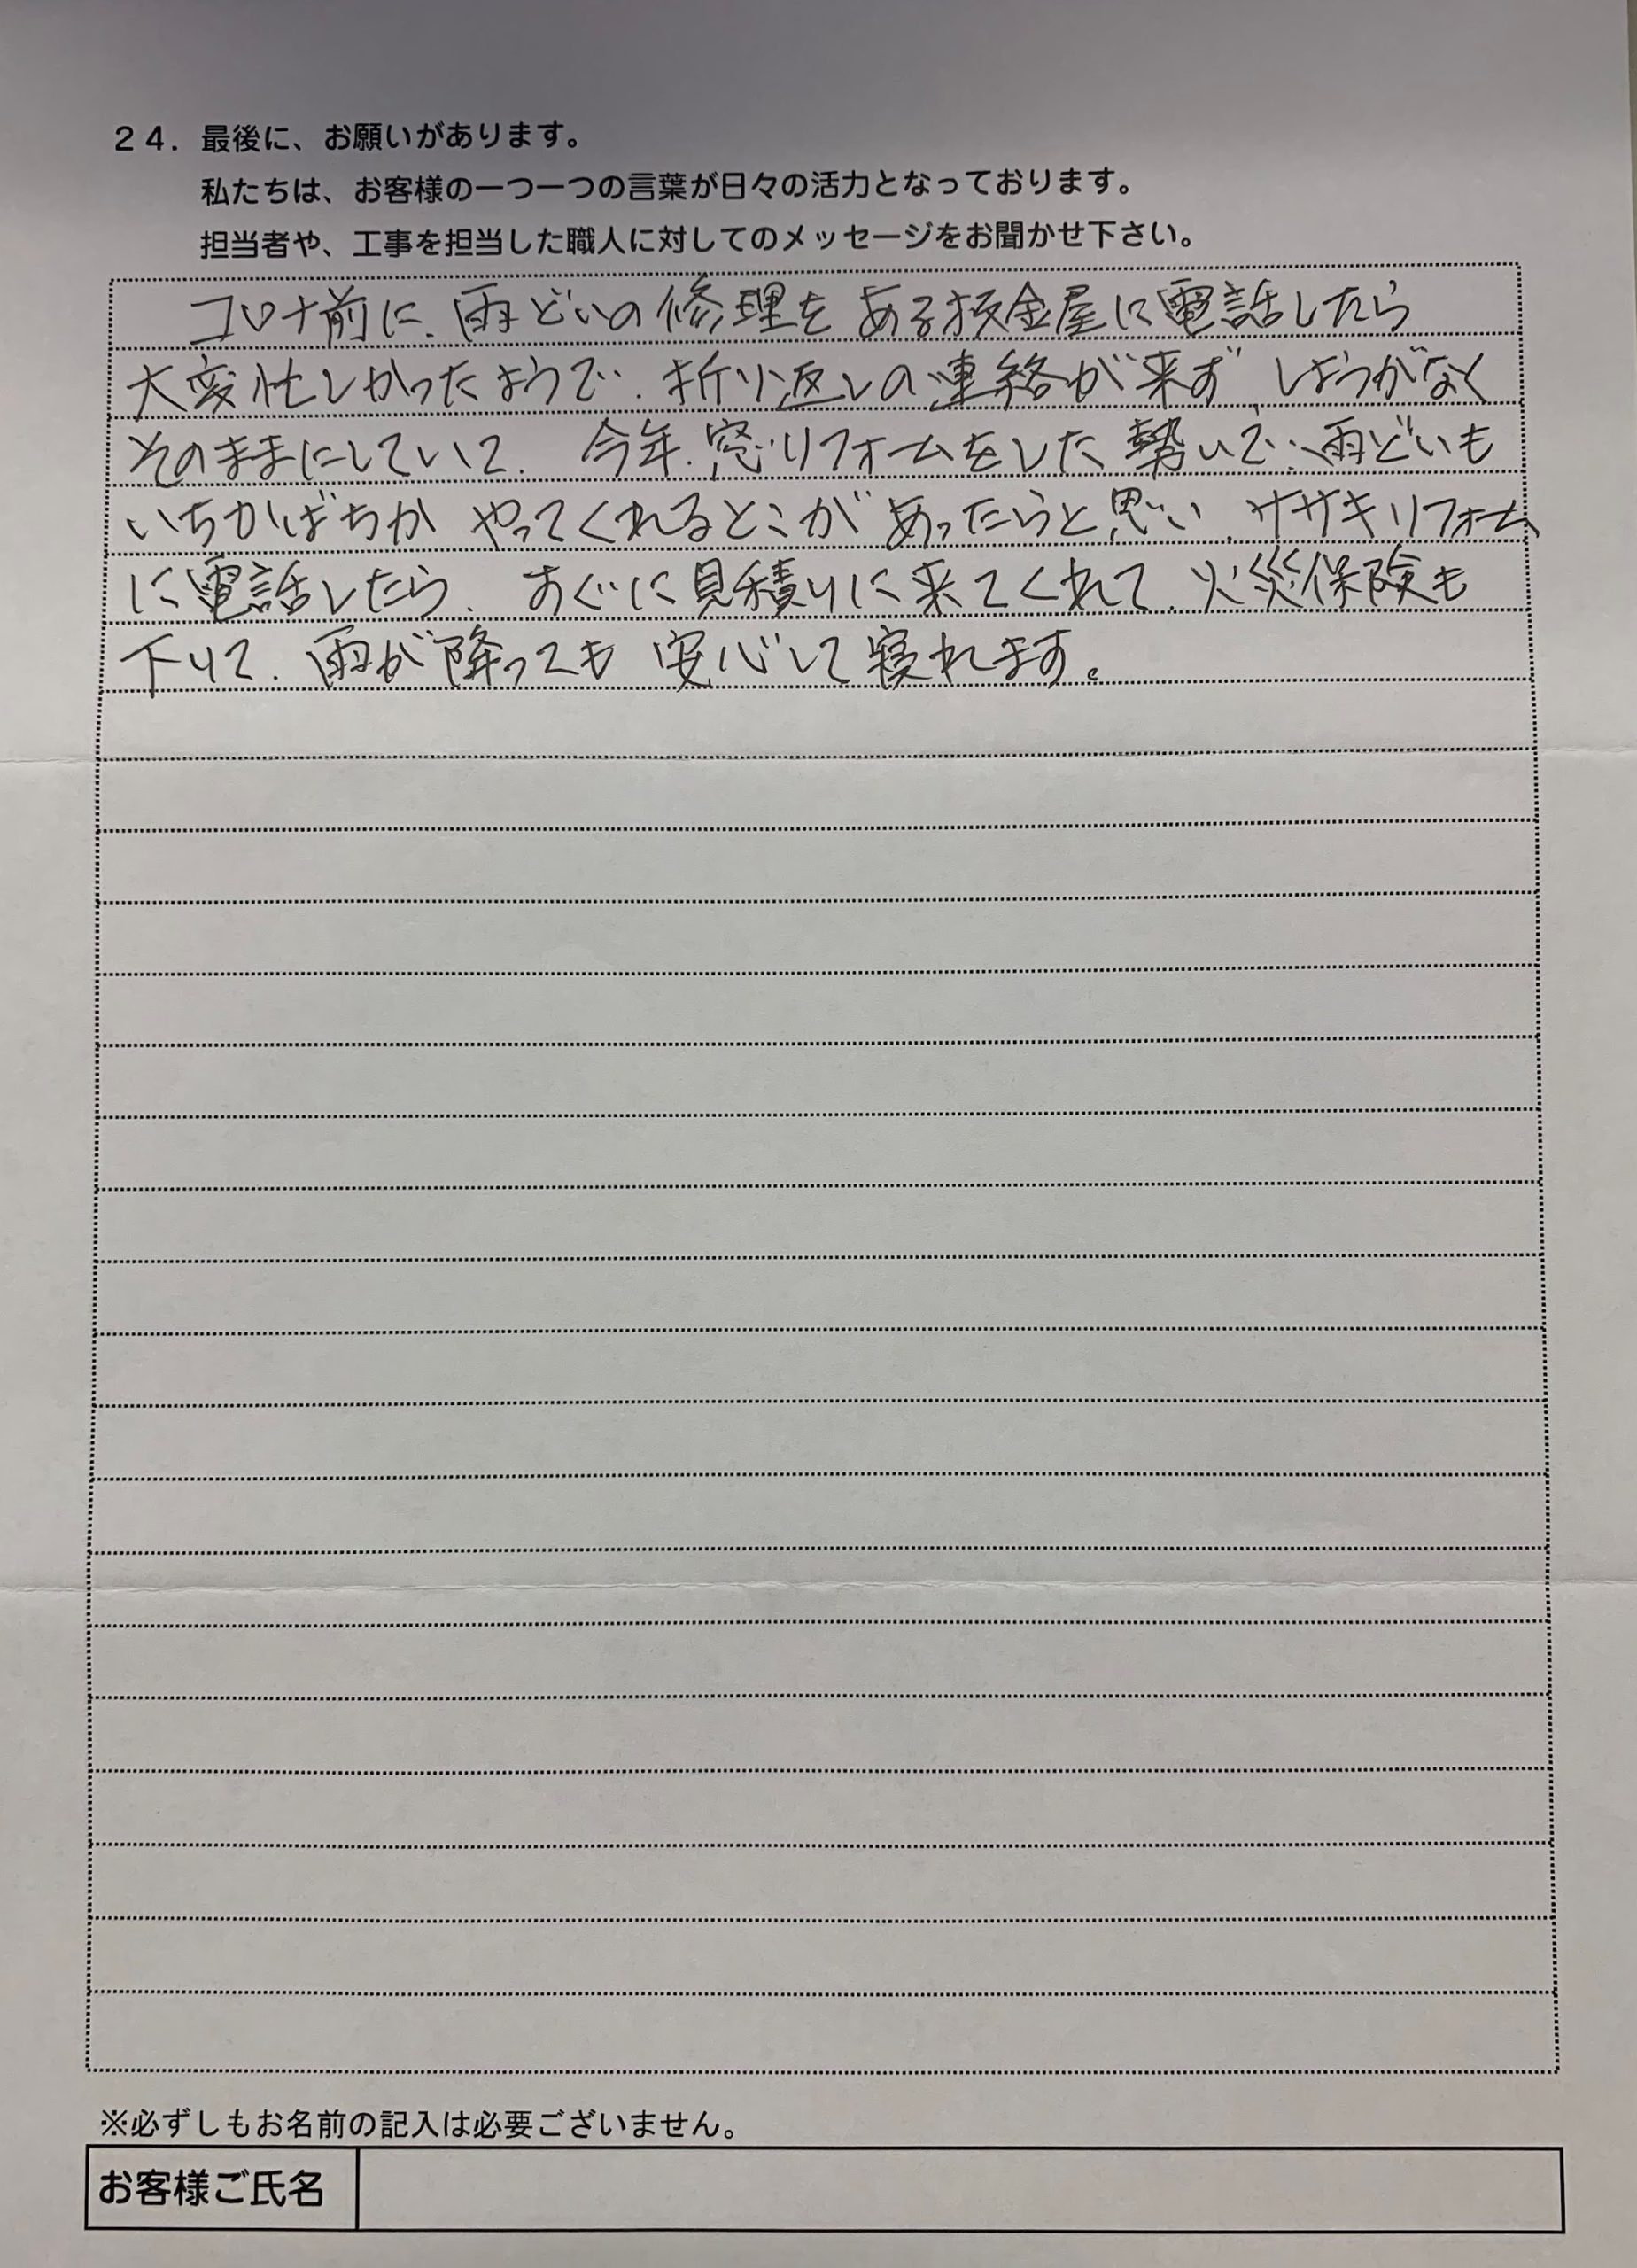 24. 最後に、お願いがあります。
私たちは、お客様の一つ一つの言葉が日々の活力となっております。
担当者や、工事を担当した職人に対してのメッセージをお聞かせ下さい。
コロナ前に、雨どいの修理をある板金屋に電話したら
大変忙しかったようで、折り返しの連絡が来ず、しょうがなく
そのままにしていて、今年、窓リフォームをした勢いで、雨どいも
いちかばちかやってくれるとこがあったらと思い、ササキリフォーム
に電話したら、すぐに見積りに来てくれて、火災保険も
下りて、雨が降っても安心して寝れます。
※必ずしもお名前の記入は必要ございません。
お客様ご氏名